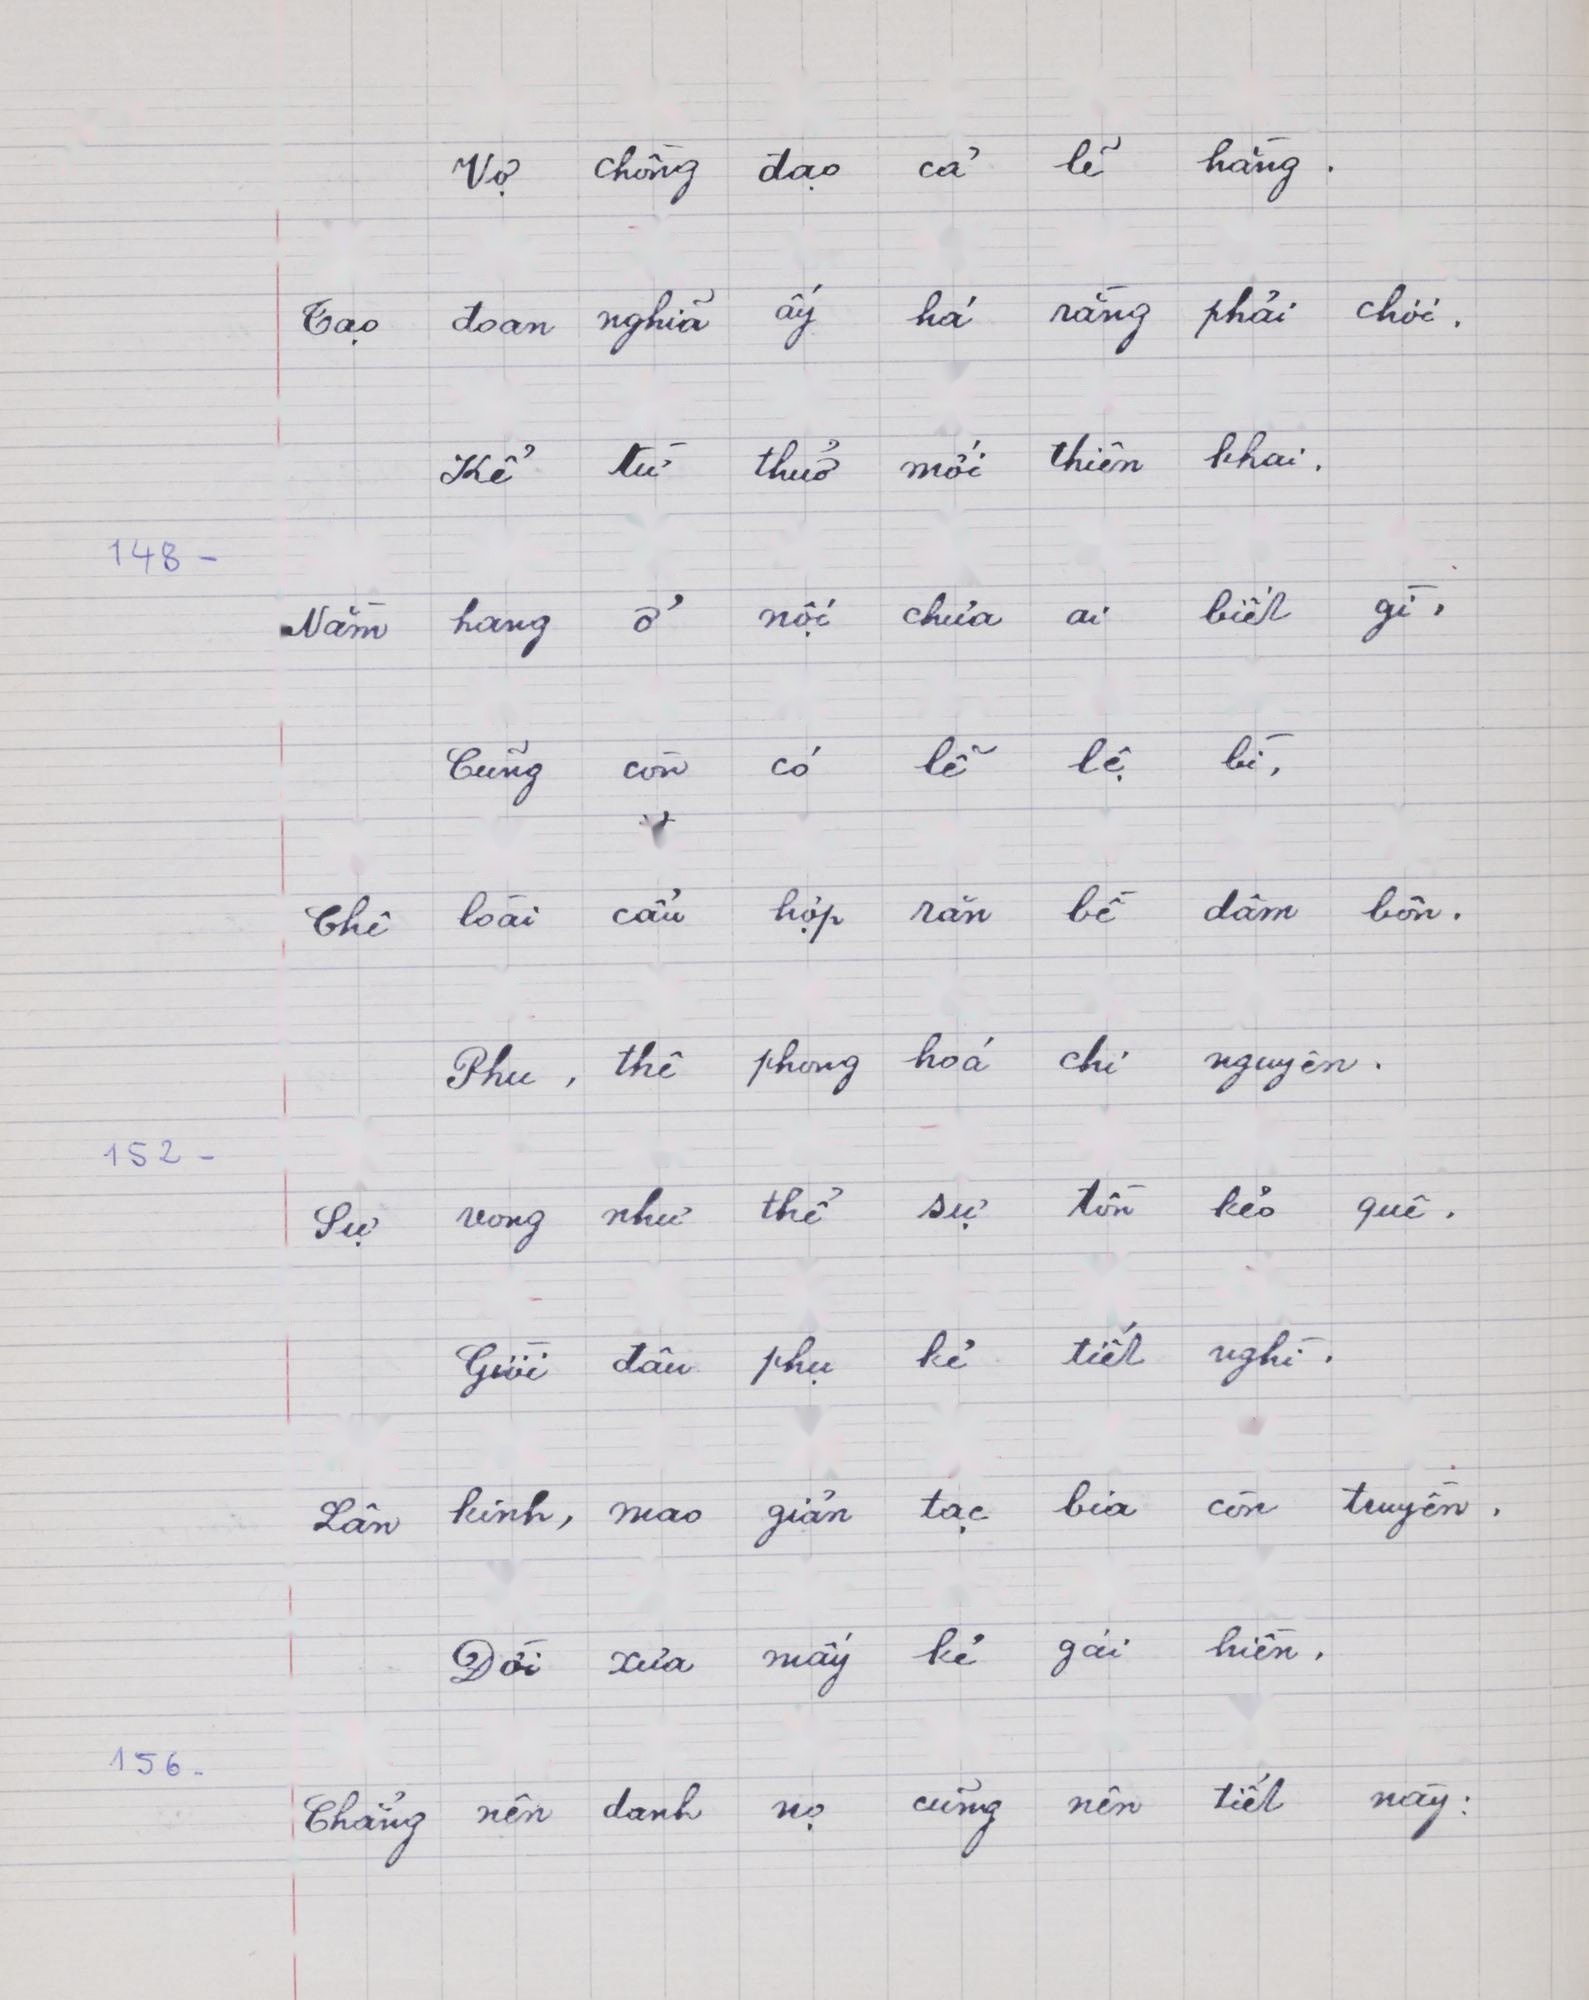 Vợ chồng đạo cả lẽ hằng.
Tạo đoan nghĩa ấy há rằng phải chơi.
Kể từ thuở mới thiên khai.
148-
Nằm hang ổ nội chưa ai biết gì,
Cũng còn có lễ lệ bì,
Chê loài cẩu hợp răn bề dâm bôn.
Phu, thê phong hoá chi nguyên.
152-
Sự vong như thể sự tồn kẻo quê.
Giời đâu phụ kẻ tiết nghì.
Lân kinh, mao giản tạc bia còn truyền.
Đời xưa mấy kẻ gái hiền.
156-
Chẳng nên danh nọ cũng nên tiết này: